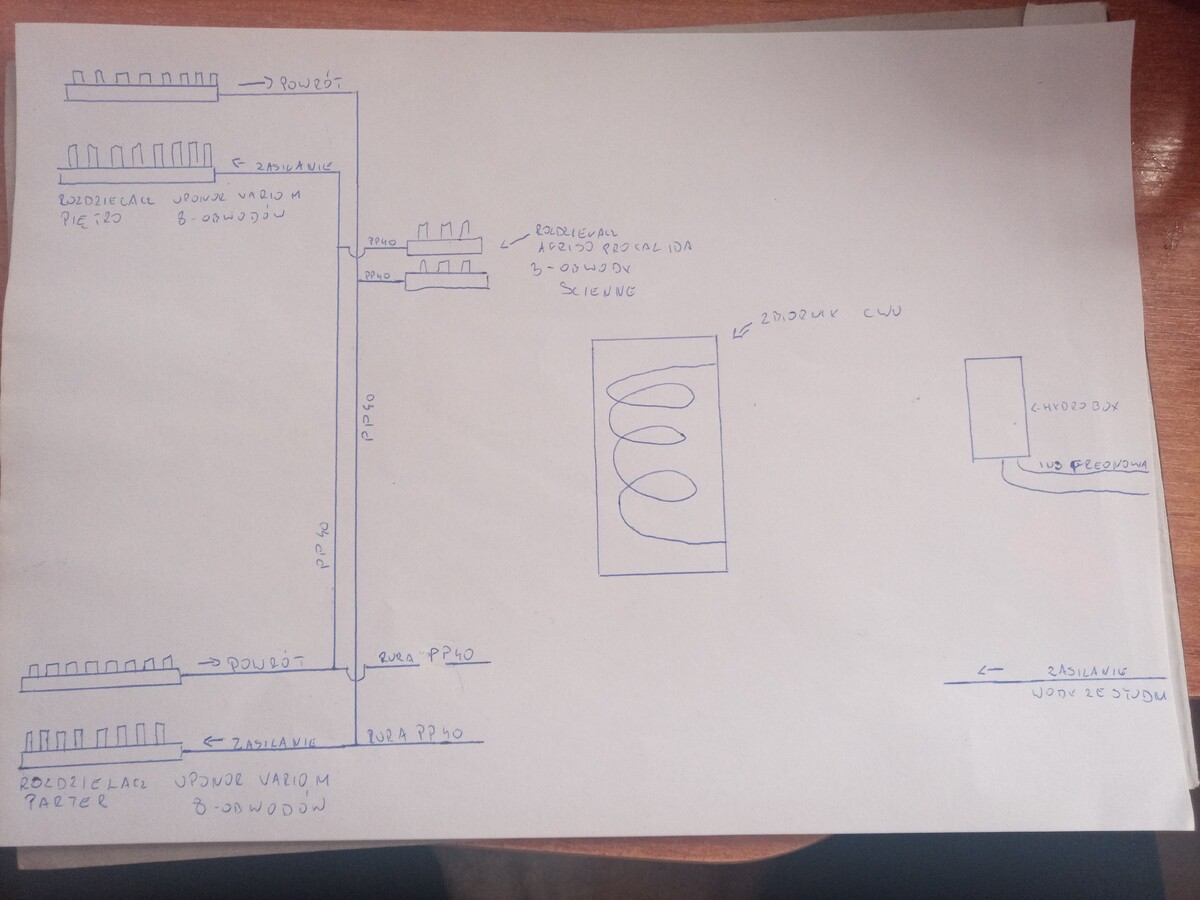 → POWRÓT
← ZASILANIE
ROZDZIELACZ UPONOR VARIO M
PIĘTRO 8-OBWODÓW
PP40
PP40
ROZDZIELACZ
AFRISO PROCALIDA
3-OBWODY
ŚCIENNE
ZBIORNIK CWU
<-HYDROBOX
FREONOWA
PP40
PP40
→ POWRÓT
RURA PP40
← ZASILANIE
WODY ZE STUDNI
← ZASILANIE
RURA PP40
ROZDZIELACZ UPONOR VARIO M
PARTER 8-OBWODÓW